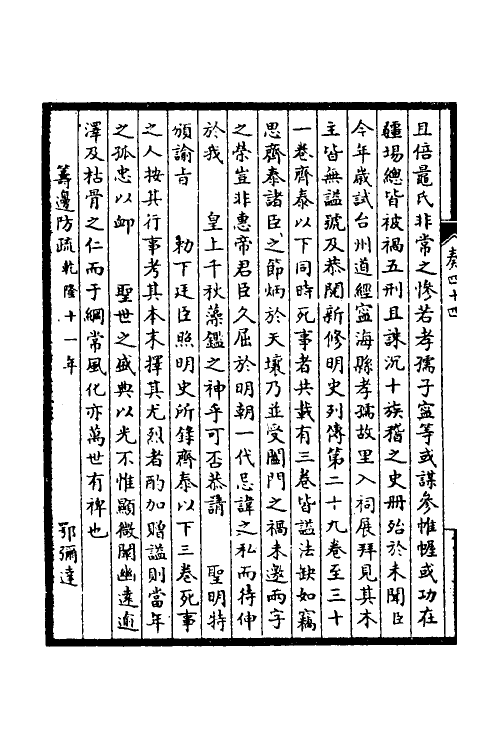 且倍鼂氏非常之慘若孝孺子寧等或謀參帷幄或功在
疆場總皆被禍五刑且誅沉十族稽之史册殆於未聞臣
今年歲試台州道經寧海縣孝孺故里入祠展拜見其木
主皆無諡號及恭閱新修明史列傳第二十九卷至三十
一卷齊泰以下同時死事者共載有三卷皆諡法缺如竊
思齊泰諸臣之節炳於天壤乃並受闔門之禍未邀兩字
之榮豈非惠帝君臣久屈於明朝一代忌諱之私而待伸
於我　皇上千秋藻鑑之神乎可否恭請　聖明特
頒諭旨　勅下廷臣照明史所錄齊泰以下三卷死事
之人按其行事考其本末擇其尤烈者酌加贈諡則當年
之孤忠以卹　聖世之盛典以光不惟顯微闡幽遠逾
澤及枯骨之仁而于綱常風化亦萬世有裨也
籌邊防疏乾隆十一年　鄂彌達
奏四十四